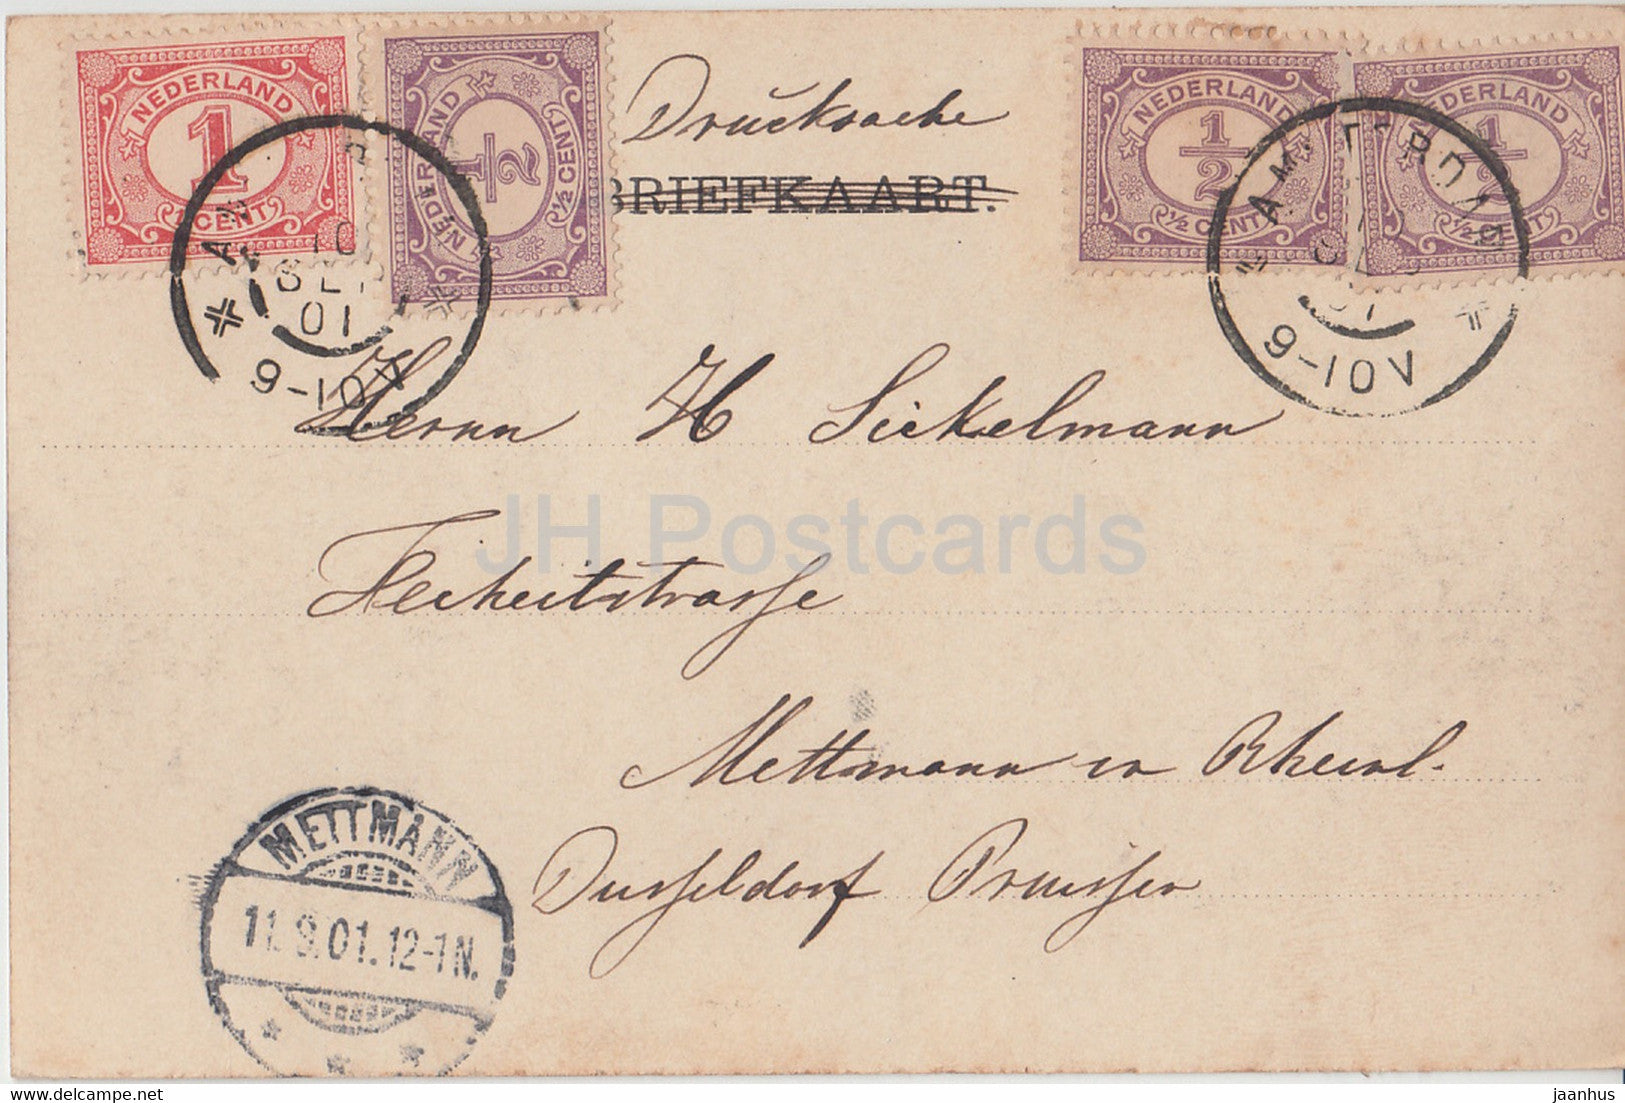 NEDERLAND
1
1 CENT
NEDERLAND
1/2
1/2 CENT
Drucksache
BRIEFKAART.
NEDERLAND
1/2
1/2 CENT
NEDERLAND
1/2
1/2 CENT
10
SEP
01
9-10V
AMSTERDAM
10
01
9-10V
Herrn H Sickelmann
JH Postcards
Freiheitstrasse
Mettmann in Rheinl.
Dusseldorf Preussen
METTMANN
11.9.01.12-1N.
jaanhus